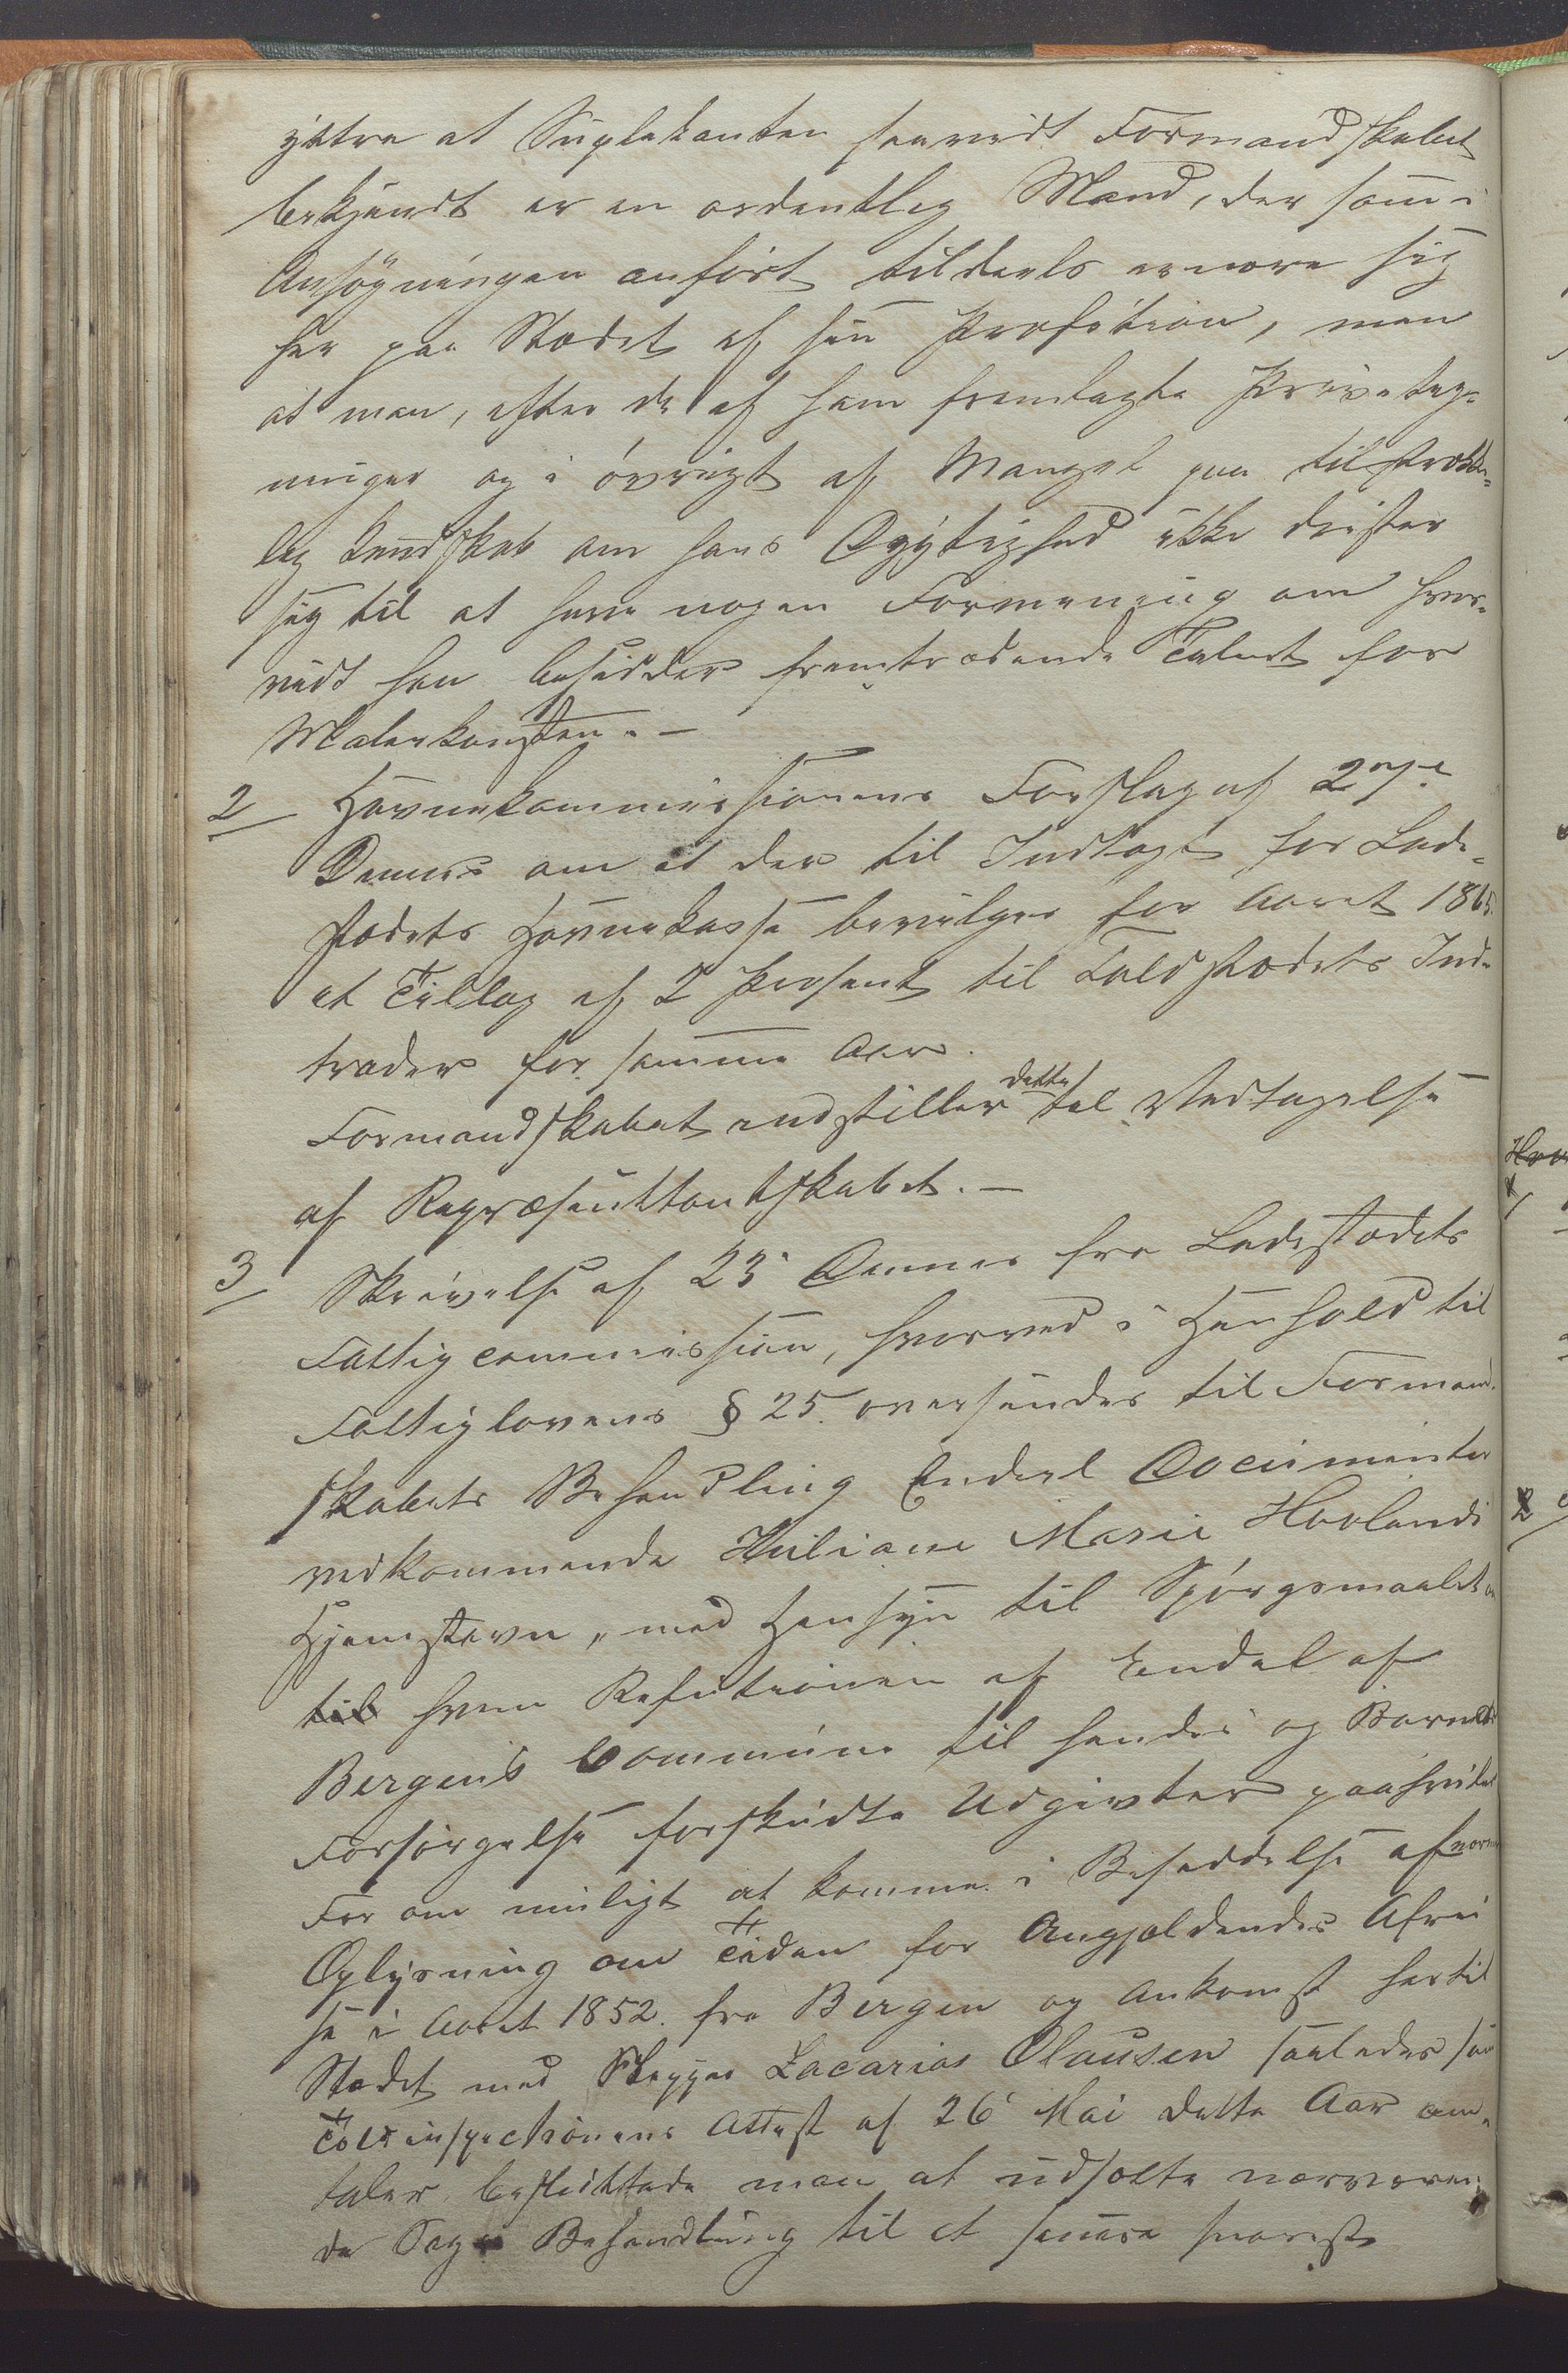 yttre at Suplekanten saavidt Formandskabet
bekjendt er en ordentlig Mand, der som i
Ansøgningen anført tildeels ernære sig
her paa Stædet af sin Profetion, men
at man, efter de af ham fremlagte Prøveteg-
ninger og i øvrigt af Mangel paa tilstrække-
lig Kundskab om hans Dygtighed ikke drister
sig til at have nogen Formening om hvor-
vidt han besidder fremtrædende Talent for
Malerkunsten. -
2 Havnekommissionens Forslag af 2
Dennes om at der til Indtægt for Lade-
stædets Havnekasse bevilges for Aaret 1865
et Tillæg af 2 Prosent til Toldstædets Ind-
trader for samme Aar.
Formandskabet indstiller dette til Vedtagelse
af Repræsentantskabet. -
3 Skrivelse af 23 Dennes fra Ladestædets
Fattigcommission, hvorved i Henhold til
Fattiglovens § 25. oversendes til Formand-
skabets Behandling Endeel Documenter
vedkommende Juliane Marie Hovlands
Hjemstavn, med Hensyn til Spørgsmaalet om
til hvem Refutionen af Endel af
Bergens Commune til hendes og Barnets
Forsørgelse forskudte Udgivter paahviler
For om muligt at komme i Besiddelse af nærmere
Oplysning om Tiden for Angjældendes Afrei
se i Aaret 1852. fra Bergen og Ankomst hertil
Stædet med Skipper Zacarias Clausen saaledes som
Toldinspectionens Attest af 26 Mai dette Aar om-
taler besluttede man at udsætte nærværen-
de Sags Behandling til et senere snarest